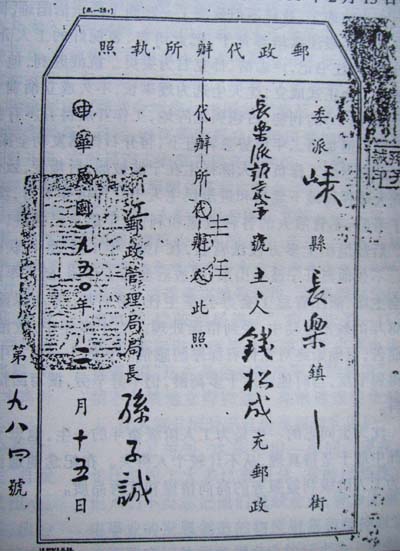 郵政代辦所執照
委派嵊縣長樂鎮丨街
長樂派報 號主人錢松成充郵政
代辦所代辦人此照
主任
浙江郵政管理局局長孫子誠
中華民國一九五〇年二月十五日
第一九八四號